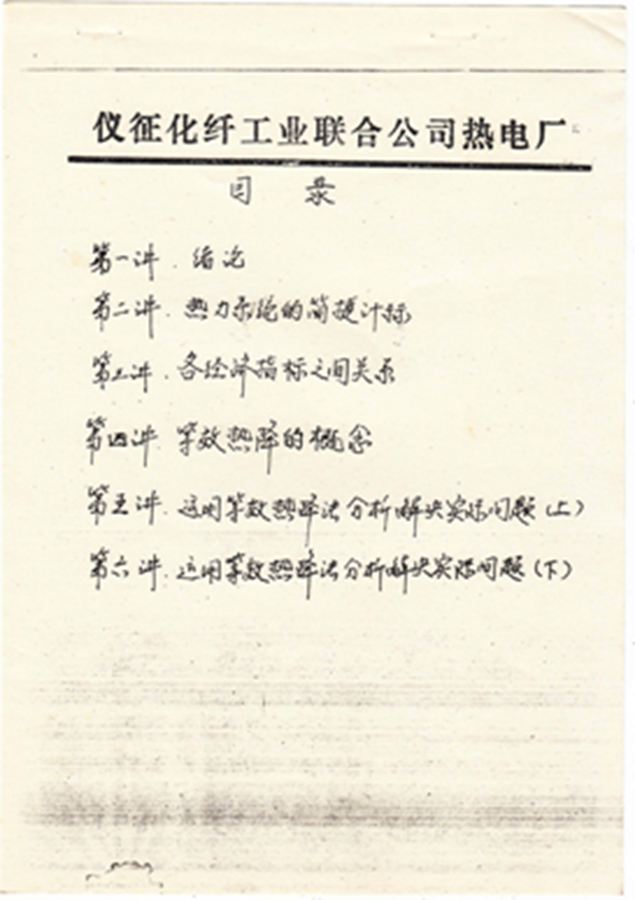 仪征化纤工业联合公司热电厂
目 录
第一讲. 绪论
第二讲. 热力系统的简捷计算
第三讲. 各经济指标之间关系
第四讲. 等效热降的概念
第五讲. 运用等效热降法分析解决实际问题(上)
第六讲. 运用等效热降法分析解决实际问题(下)